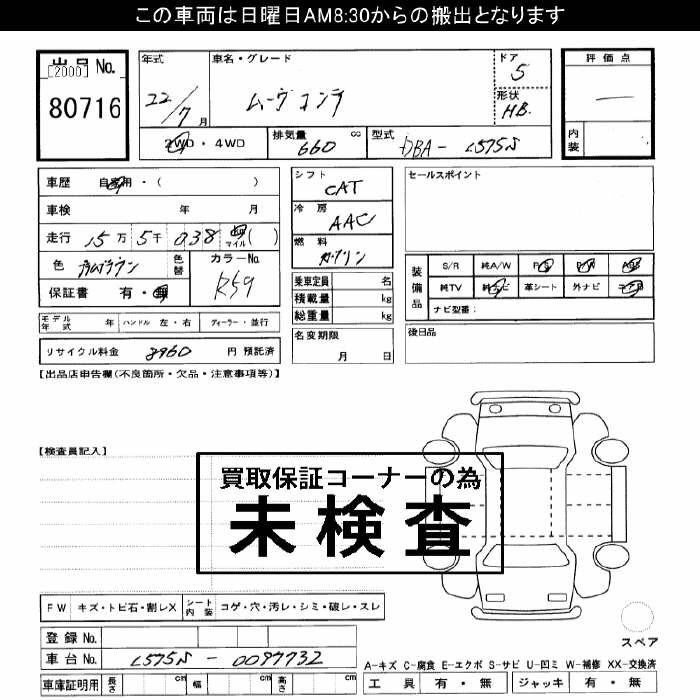 この車両は日曜日AM8:30からの搬出となります
出品 No.
[2000]
80716
年式
22/7 月
車名・グレード
ムーヴ コンテ
ドア
5
形状
HB
評価点
内装
2WD・4WD
排気量 660 cc
型式 DBA- L575S
車歴 自家用・( )
車検 年 月
走行 15万 5千 038 km マイル ( )
色
色替
カラーNo.
R59
保証書 有・無
シフト
CAT
冷房
AAC
燃料
ガソリン
乗車定員 名
積載量 kg
総重量 kg
セールスポイント
装備品
S/R 純A/W P/S P/W A/B
純TV 純ナビ 革シート 外ナビ
ナビ型番:
モデル年式 年 ハンドル 左・右 ディーラー・並行
リサイクル料金 8960 円 預託済
名変期限
月 日
後日品
【出品店申告欄(不良箇所・欠品・注意事項等)】
【検査員記入】
買取保証コーナーの為
未検査
FW キズ・トビ石・割レX シート内装 コゲ・穴・汚レ・シミ・破レ・スレ
登録 No.
車台 No. L575S - 0097732
車庫証明用 長さ cm 幅 cm 高さ cm
スペア
A-キズ C-腐食 E-エクボ S-サビ U-凹ミ W-補修 XX-交換済
工具 有・無 ジャッキ 有・無